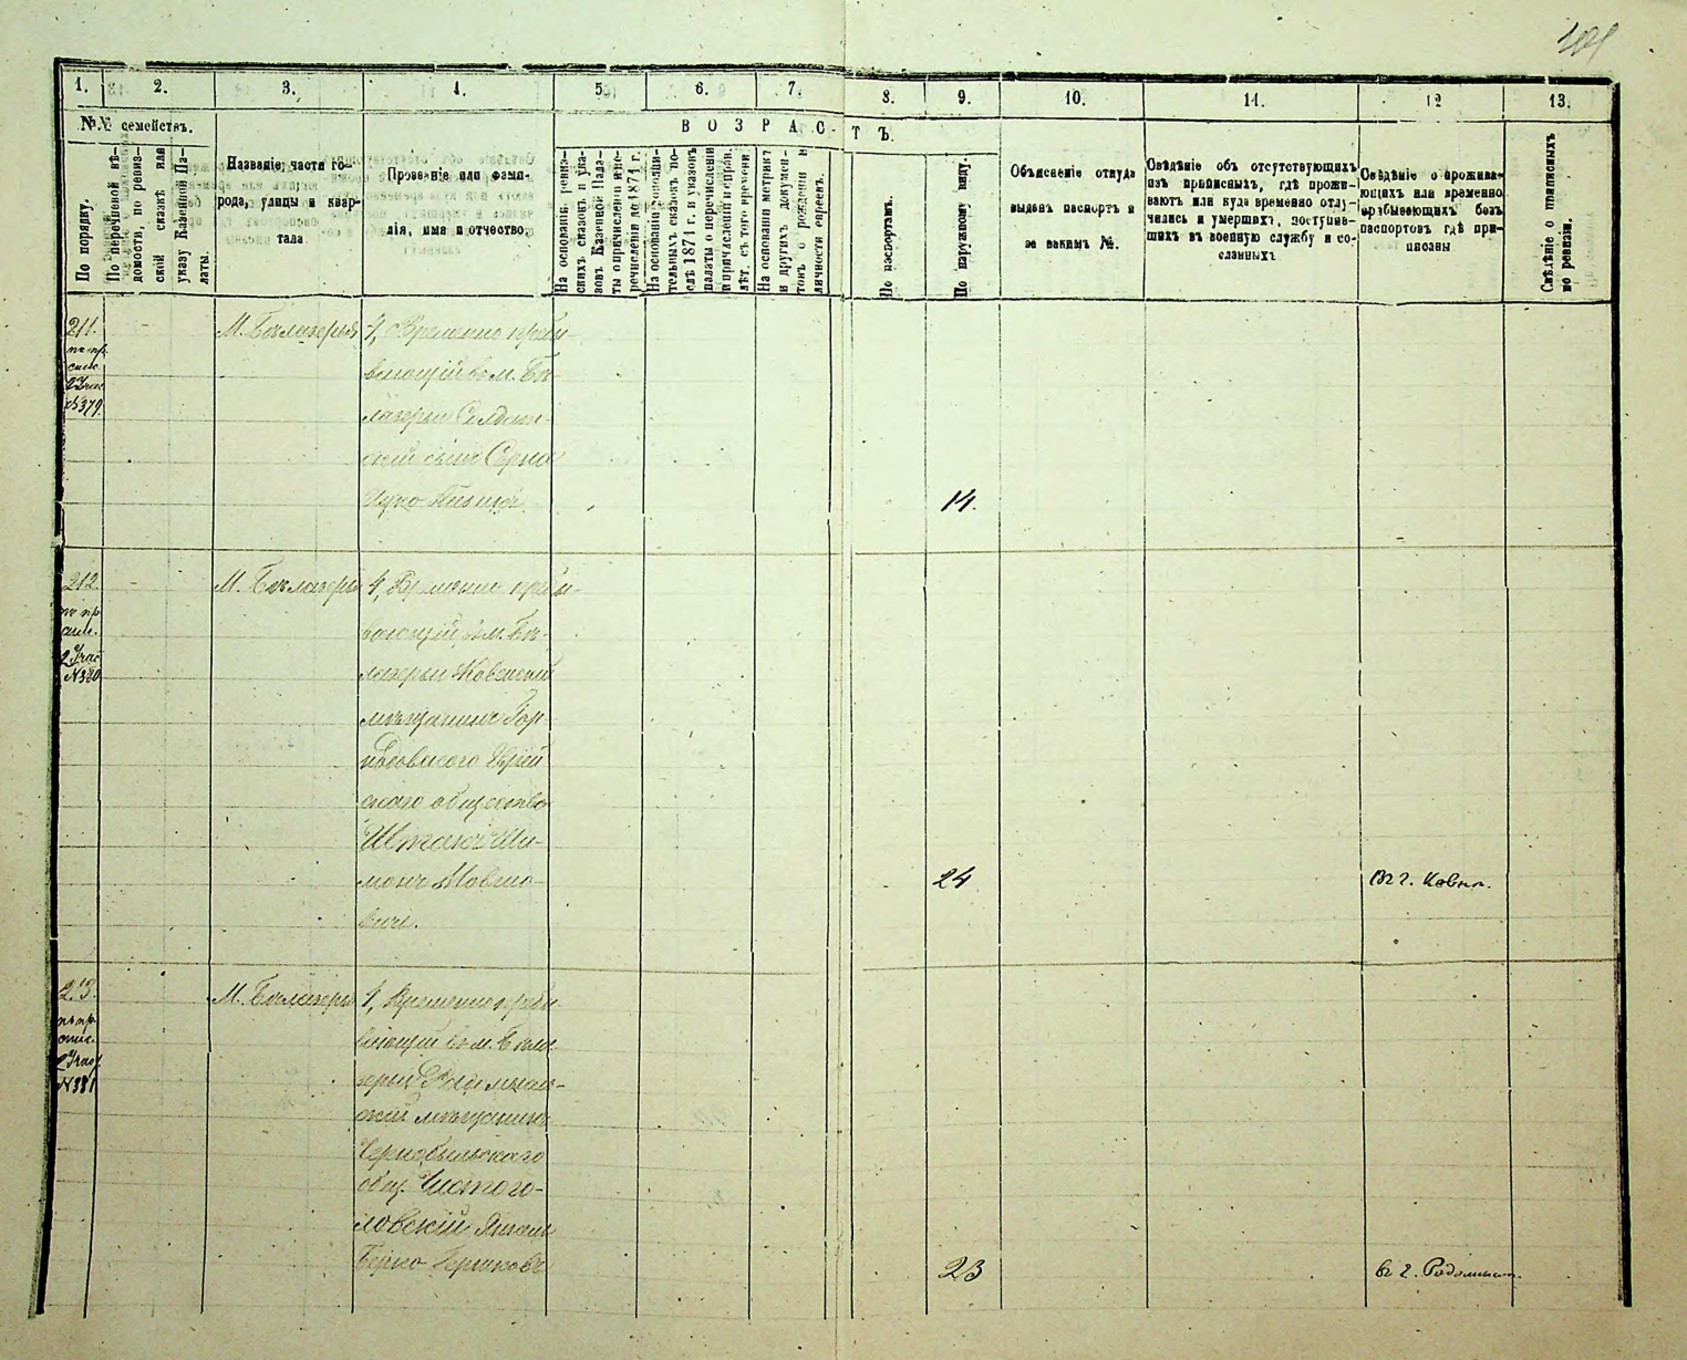 1. 2. 3. 4. 5. 6. 7. 8. 9. 10. 11. 12 13.
№№ семействъ.
По порядку.
По перечневой вѣ-
домости, по ревиз-
ской сказкѣ или
указу Казенной Па-
латы.
Названіе части го-
рода, улицы и квар-
тала.
Прозваніе или фами-
лія, имя и отчество.
ВОЗРАСТЪ.
На основан. ревиз-
скихъ сказокъ и ука-
зовъ Казенной Пала-
ты о причислен и пе-
речислени до 1874 г.
На основани дополни-
тельныхъ сказокъ по-
слѣ 1874 г. и указовъ
палаты о перечислени
и причислени и справ.
лѣт. съ того времени
На основани метрикъ
и другихъ докумен-
товъ о рожденіи и
личности евреевъ.
По паспортамъ.
По наружному виду.
Объясненіе откуда
выданъ паспортъ и
за какимъ №.
Свѣдѣніе объ отсутствующихъ
изъ приписныхъ, гдѣ прожи-
ваютъ или куда временно отлу-
чились и умершихъ, поступив-
шихъ въ военную службу и со-
сланныхъ
Свѣдѣніе о прожива-
ющихъ или временно
пребывающихъ безъ
паспортовъ гдѣ при-
писаны
Свѣдѣніе о приписныхъ
по ревизіи.
211.
по пр.
спис.
2 Учас
№379.
М. Бѣлазерья
1, Временно пребы-
вающій въ м. Бѣ-
лазерьи Солдат-
скій сынъ
14.
212
по пр.
спис.
2 Учас
№380
М. Бѣлазерья
1, Временно пребы-
вающій въ м. Бѣ-
лазерьи Ковенскій
мѣщанинъ
Еврей-
скаго общества
Шимонъ Мовшо-
вичъ.
24
въ г. Ковнѣ.
213.
по пр.
спис.
2 Учас
№381
М. Бѣлазерья
1, Временно пребы-
вающій въ м. Бѣла-
зерьи Радомысль-
скій мѣщанинъ
Чернобыльскаго
общ. Чистого-
ловскій
Берко Гершковъ
23
въ г. Радомысл.